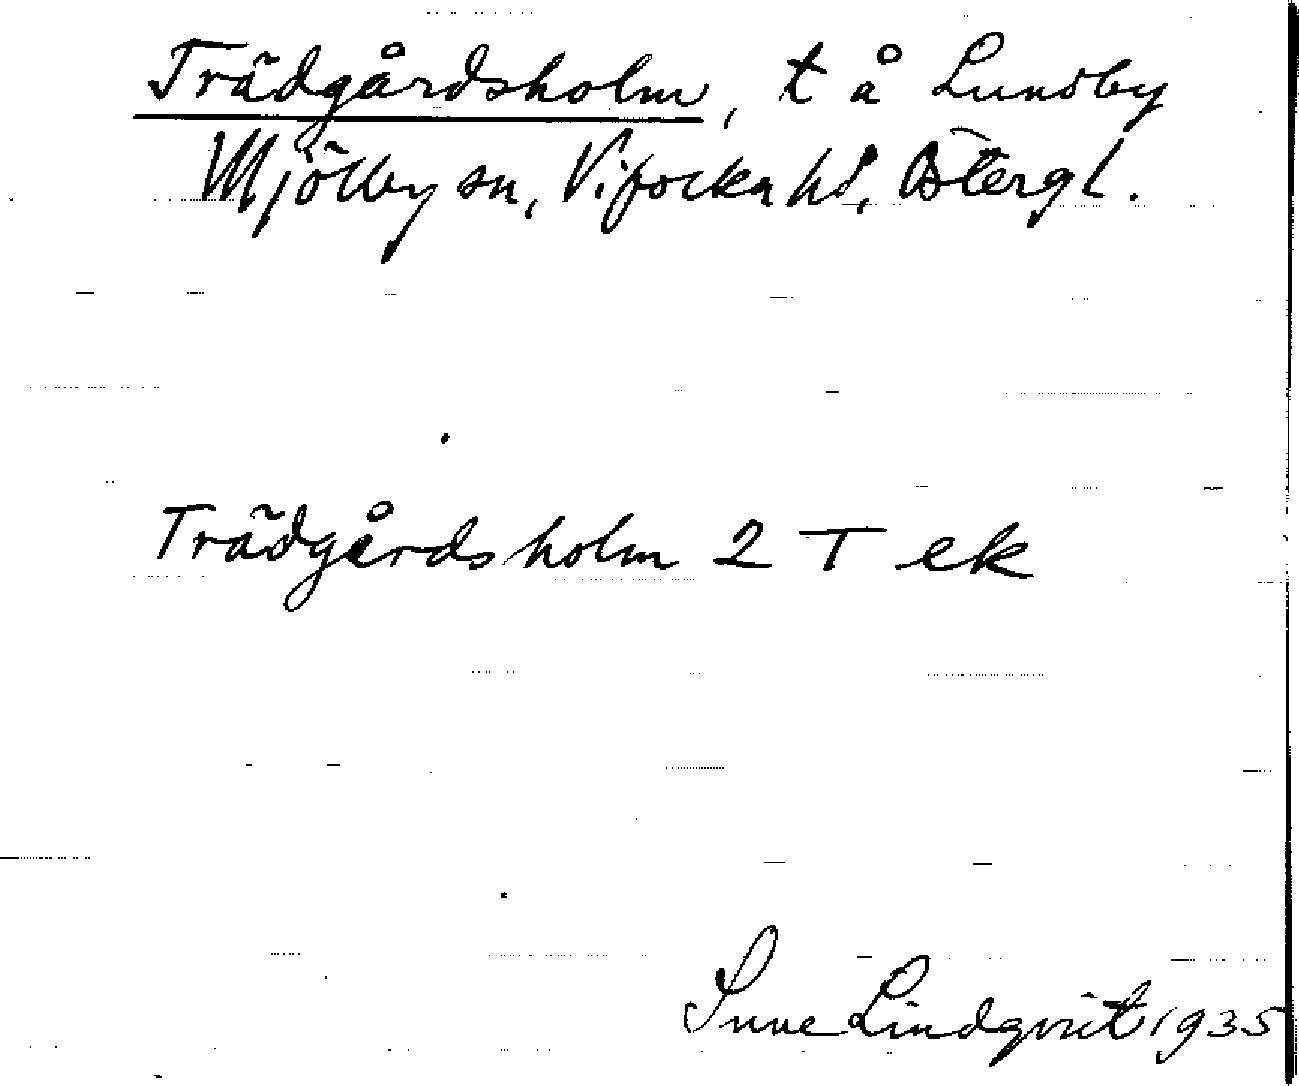 Trädgårdsholm, t å Lundby
Mjölby sn, Vifocka hd, Östergl.
Trädgårdsholm 2 T ek
Sune Lindqvist 1935